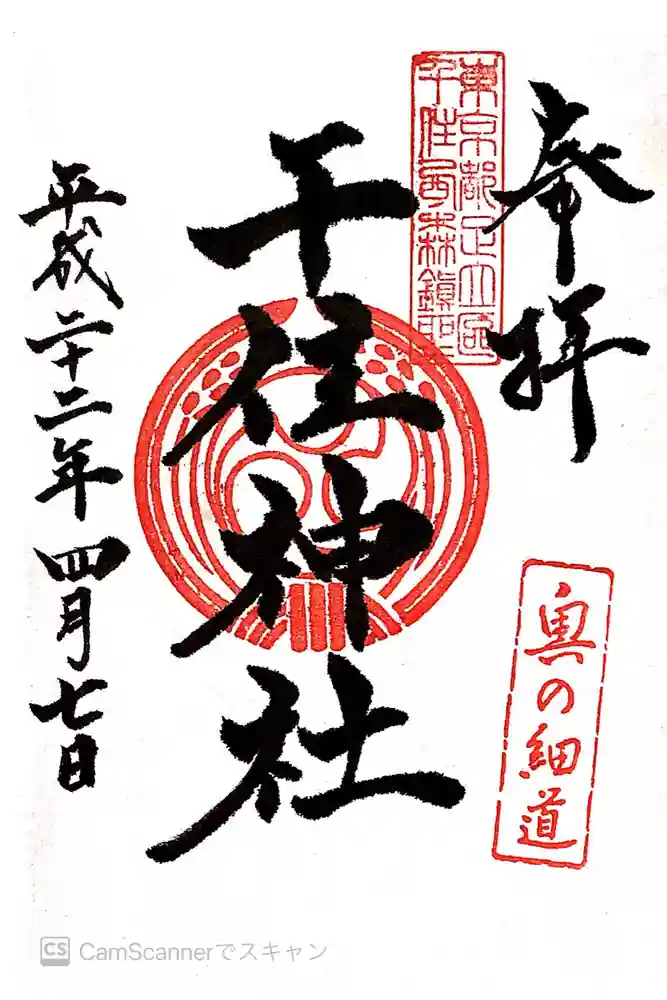 奉拝
東京都足立區
千住西森鎮聖
千住神社
奥の細道
平成二十二年四月七日
CS CamScannerでスキャン